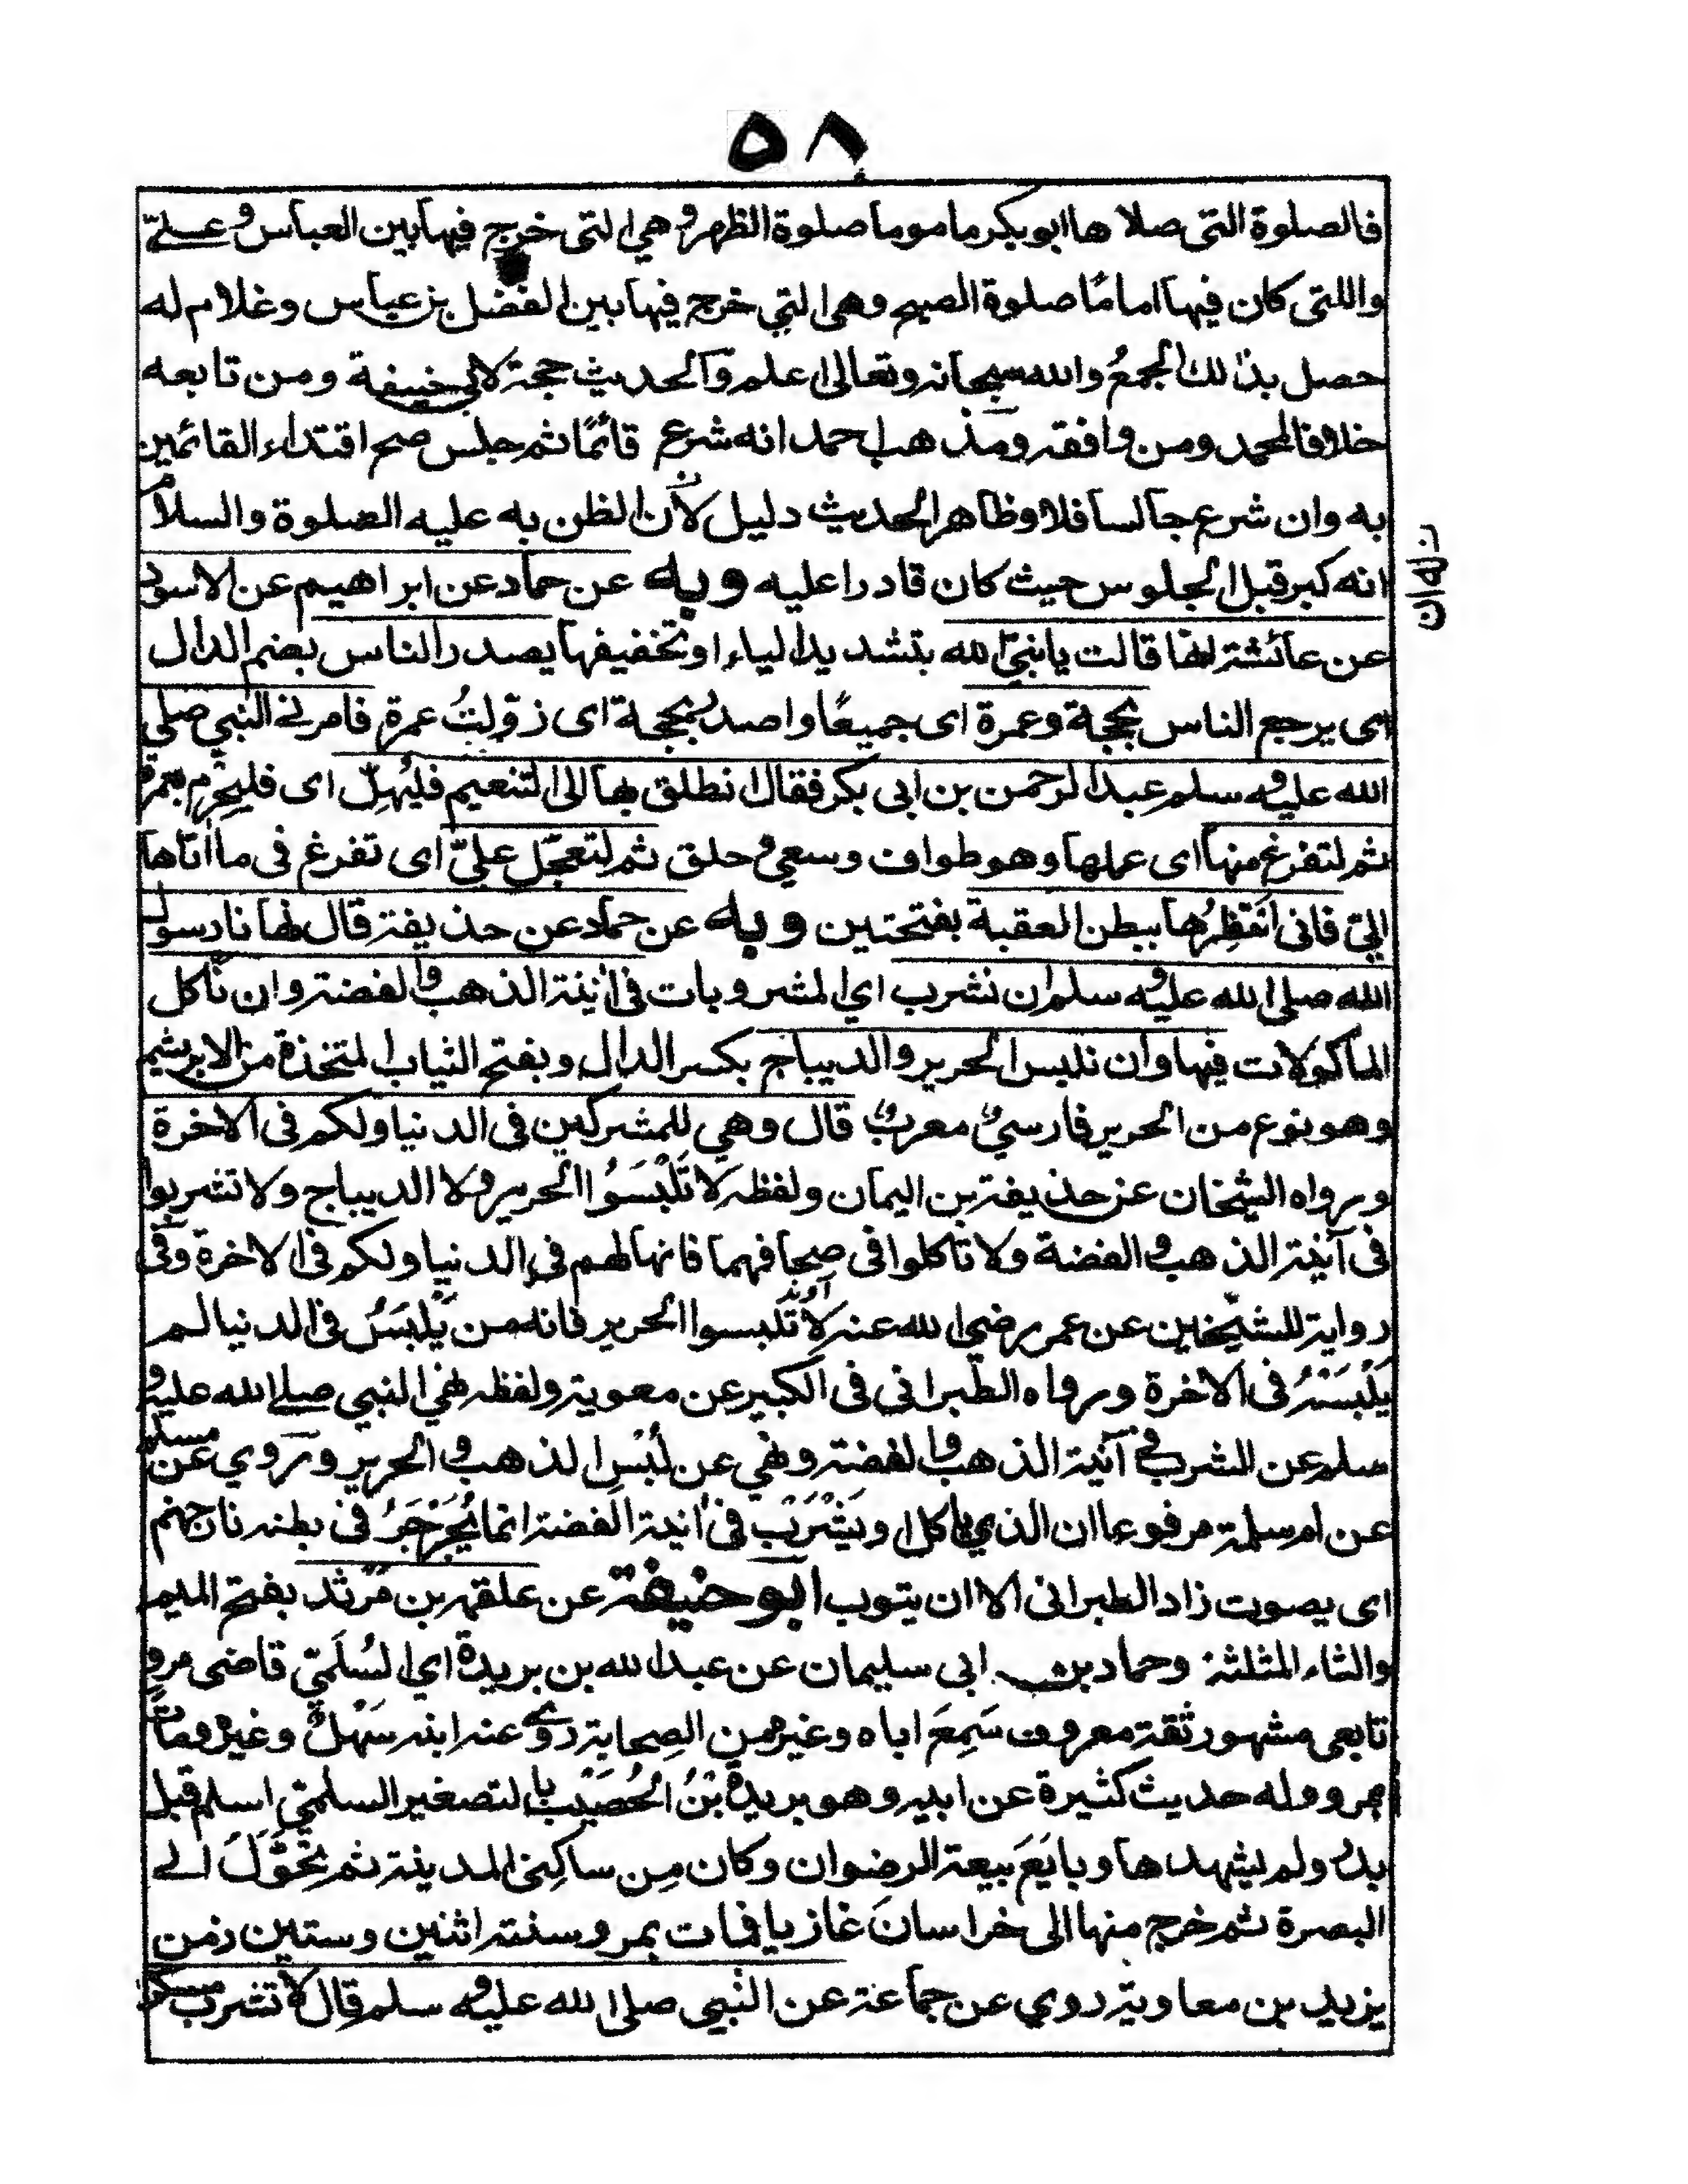 ٥٨
فالصلوة التى صلاها ابو بكر ماموما صلوة الظهر وهي التى خرج فيها بين العباس وعلىّ
واللتى كان فيها امامًا صلوة الصبح وهى التي خرج فيها بين الفضل بن عباس وغلام له
حصل بذلك الجمعُ والله سبحانه وتعالى اعلم والحديث حجة لابى حنيفة ومن تابعه
خلافا لمحمد ومن وافقه ومذهب احمد انه شرع قائمًا ثم جلس صح اقتداء القائمين
به وان شرع جالسا فلا وظاهر الحديث دليل لأن الظن به عليه الصلوة والسلام
انه كبر قبل الجلوس حيث كان قادرا عليه وبه عن حماد عن ابراهيم عن الاسود
عن عائشة انها قالت يا نبيّ الله بتشديد الياء او تخفيفها يصدر الناس بضم الدال
اى يرجع الناس بحجة وعمرة اى جميعًا واصدر بحجة اى فامرنى النبي صلى
الله عليه وسلم عبد الرحمن بن ابى بكر فقال انطلق بها الى التنعيم فليُهلّ اى فليحرم بعمرة
ثم لتفرغ منها اى عملها وهو طواف وسعي وحلق ثم لتعجّل عليّ اى تفرغ فى ما اتاها
اليّ فانى انتظرُها ببطن العقبة بفتحتين وبه عن حماد عن حذيفة قال نهانا رسول
الله صلى الله عليه وسلم ان نشرب اي المشروبات فى انية الذهب والفضة وان نأكل
الماكولات فيها وان نلبس الحرير والديباج بكسر الدال وبفتح الثياب المتخذة من الابريشم
وهو نوع من الحرير فارسيٌ معربٌ قال وهي للمشركين فى الدنيا ولكم فى الاخرة
ورواه الشيخان عن حذيفة بن اليمان ولفظه لا تَلْبَسُوا الحرير ولا الديباج ولا تشربوا
فى آنية الذهب والفضة ولا تاكلوا فى صحافهما فانها لهم فى الدنيا ولكم فى الاخرة وفى
رواية للشيخين عن عمر رضى الله عنه لا تلبسوا الحرير فانه من يَلْبَسُ فى الدنيا لم
يَلْبَسْهُ فى الاخرة ورواه الطبرانى فى الكبير عن معوية ولفظه نهي النبي صلى الله عليه و
سلم عن الشرب فى آنية الذهب والفضة ونهي عن لُبْسِ الذهب والحرير وروي عن مسلم
عن ام سلمة مرفوعا ان الذي ياكل ويَشْرَبُ فى أنية الفضة انما يُجَرْجِرُ فى بطنه نار جهنم
اى يصوت زاد الطبرانى الا ان يتوب ابو حنيفة عن علقمة بن مَرْثد بفتح الميم
والثاء المثلثة وحماد بن ابى سليمان عن عبد الله بن بريدة اي السُلَمِيّ قاضى مرو
تابعى مشهور ثقة معروف سَمِعَ اباه وغيره من الصحابة روى عنه ابنه سَهْلٌ وغيره ومات
بمرو وله حديث كثيرة عن ابيه وهو بريدة بْنُ الحُصَيْب بالتصغير السلميّ اسلم قبل
بدر ولم يشهدها وبايَعَ بيعة الرضوان وكان مِن ساكِنى المدينة ثم تحَوَّلَ الى
البصرة ثم خرج منها الى خراسانَ غازيا فمات بمرو سنة اثنين وستين زمن
يزيد بن معاوية روي عن جماعة عن النبي صلى الله عليه وسلم قال لا تشرب مسكر